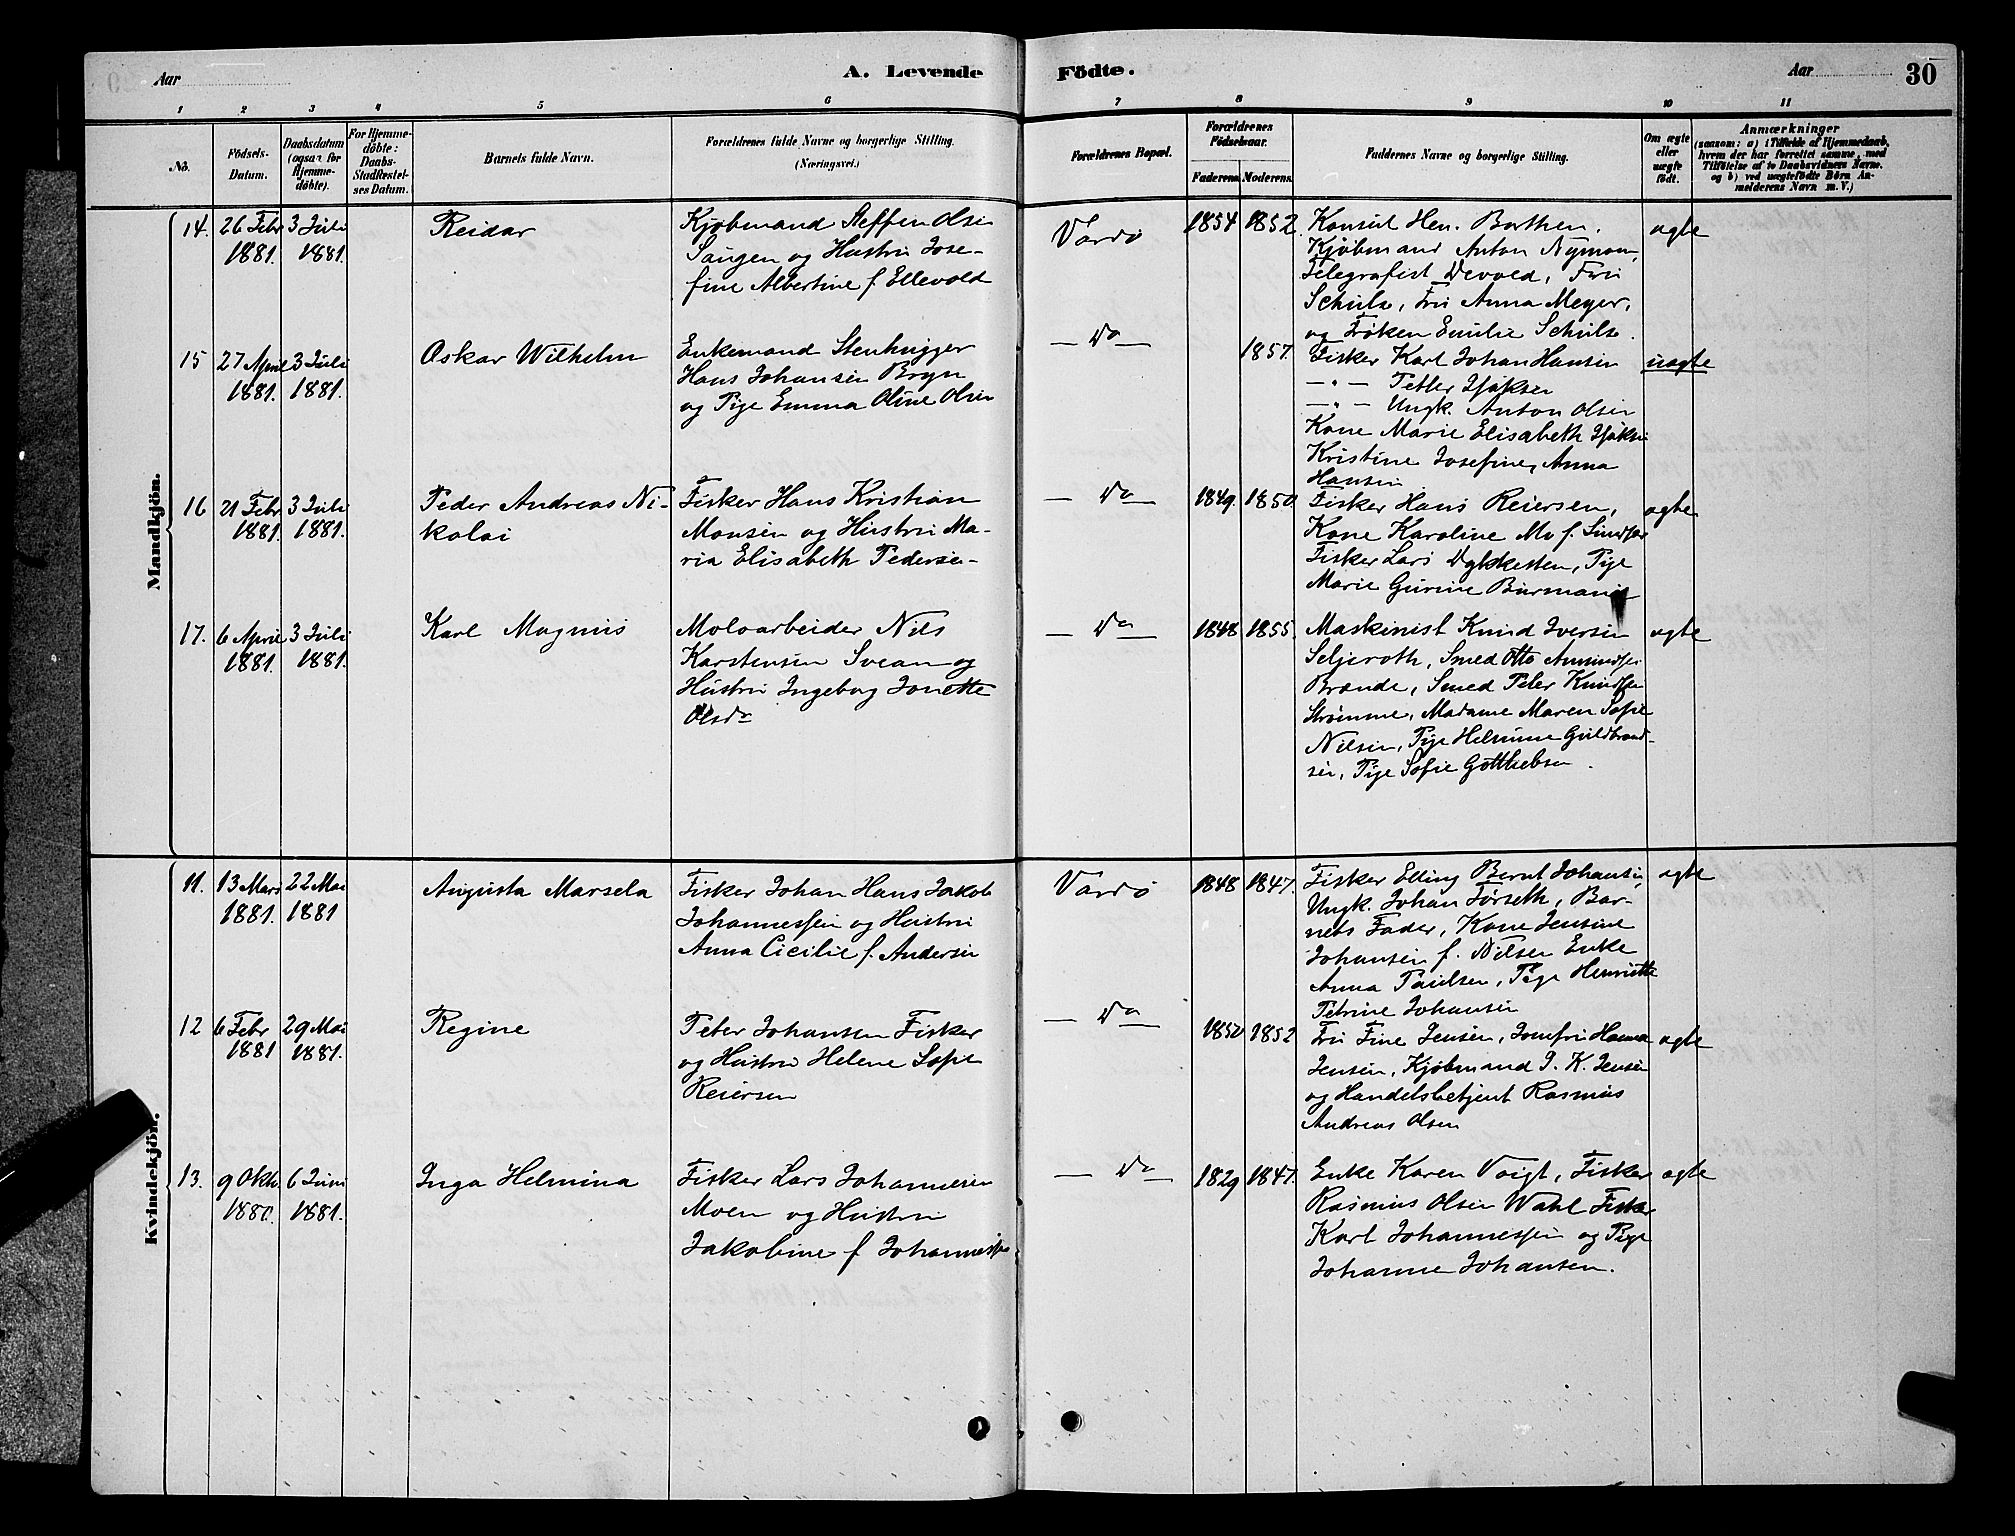 Aar
A. Levende
Födte.
Aar
30
1 2 3 4 5 6 7 8 9 10 11
No.
Födsels-
Datum.
Daabsdatum
(ogsaa for
Hjemme-
döbte).
For Hjemme-
döbte:
Daabs-
Stadfæstel-
ses Datum.
Barnets fulde Navn.
Forældrenes fulde Navne og borgerlige Stilling.
(Næringsvei.)
Forældrenes Bopæl.
Forældrenes
Födselsaar.
Faderens. Moderens.
Faddernes Navne og borgerlige Stilling.
Om ægte
eller
uægte
født.
Anmærkninger
(saasom: a) i Tilfælde af Hjemmedaab,
hvem der har forrettet samme, med
Tilföielse af to Daabsvidners Navne.
og b) ved uægteföde Börn An-
melderens Navn m. V.)
Mandkjön.
14. 26 Febr 3 Juli
1881. 1881.
Reidar
Kjøbmand Steffen Olsen
Saugen og Hustru Jose-
fine Albertine f. Ellevold
Vardø
1854 1852
Konsul Hen. Barthen,
Kjøbmand Anton Nyman,
Telegrafist Devold, Fru
Schulz, Fru Anna Meyer,
og Frøken Emilie Schulz.
ægte
15 27 April 3 Juli
1881. 1881.
Oskar Wilhelm
Enkemand Stenhugger
Hans Johansen Bryn
og Pige Emma Oline Olsen
— Do —
1857
Fisker Karl Johan Hansen
— " — Petter Isaksen
— " — Ungk. Anton Olsen
Kone Marie Elisabeth Isaksen
Kristine Josefine, Anna
Hansen
uægte
16 21 Febr 3 Juli
1881. 1881.
Peder Andreas Ni-
kolai
Fisker Hans Kristian
Monsen og Hustru Ma-
ria Elisabeth Pedersen
— Do —
1849. 1850
Fisker Hans Reiersen,
Kone Karoline Mo f.
Fisker Lars Pige
Marie Gurine
ægte
17. 6 April 3 Juli
1881. 1881.
Karl Magnus
Moloarbeider Nils
Karstensen Svean og
Hustru Ingeborg Jonette
Olsdr
— Do —
1848 1855.
Maskinist Knud Iversen
Seljeroth, Smed Otto Amundsen
Brande, Smed Peter Knudsen
Strømme, Madame Maren Sofie
Nilsen, Pige Helmine Guldbrand-
sen, Pige Sofie Gottliebsen.
ægte
Kvindekjön.
11. 13 Mars 22 Mai
1881. 1881
Augusta Marsela
Fisker Johan Hans Jakob
Johannessen og Hustru
Anna Cicilie f. Andersen
Vardø
1848 1847.
Fisker Elling Bernt Johansen,
Ungk. JohanFørseth, Bar-
nets Fader, Kone Jensine
Johansen f. Nilsen Enke
Anna Paulsen, Pige Henriette
Petrine Johansen
ægte
12 6 Febr 29 Mai
1881 1881.
Regine
Peter Johansen Fisker
og Hustru Helene Sofie
Reiersen
— Do —
1850 1852
Fru Fine Jensen, Jomfru Hanna
Jensen, Kjøbmand J. K. Jensen
og Handelsbetjent Rasmus
Andreas Olsen
ægte
13. 9 Oktb 6 Juni
1880. 1881.
Inga Helmina
Fisker Lars Johannesen
Moen og Hustru
Jakobine f Johannessen
— Do —
1829 1847.
Enke Karen Voigt, Fisker
Rasmus Olsen Wahl Fisker
Karl Johannessen og Pige
Johanne Johansen.
ægte